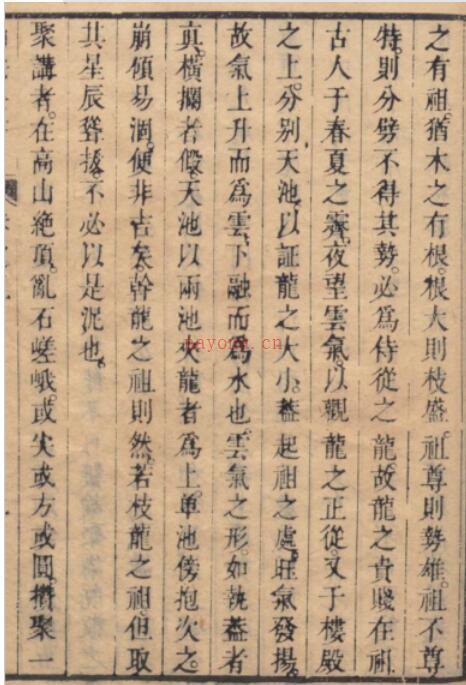 之有祖。猶木之有根。根大則枝盛。祖尊則勢雄。祖不尊
特。則分劈不得其勢。必爲侍從之龍。故龍之貴賤在祖
古人于春夏之霽。夜望雲氣。以觀龍之正從。又于樓殿
之上。分別天池。以証龍之大小。葢起祖之處。旺氣發揚。
故氣上升而爲雲。下融而爲水也。雲氣之形。如執葢者
真。橫攔者假。天池以兩池夾龍者爲上。單池傍抱次之。
崩傾易涸。便非吉矣。幹龍之祖則然。若枝龍之祖。但取
其星辰聳拔。不必以是泥也。
聚講者。在高山絶頂。亂石嵯峨。或尖或方或圓。攢聚一